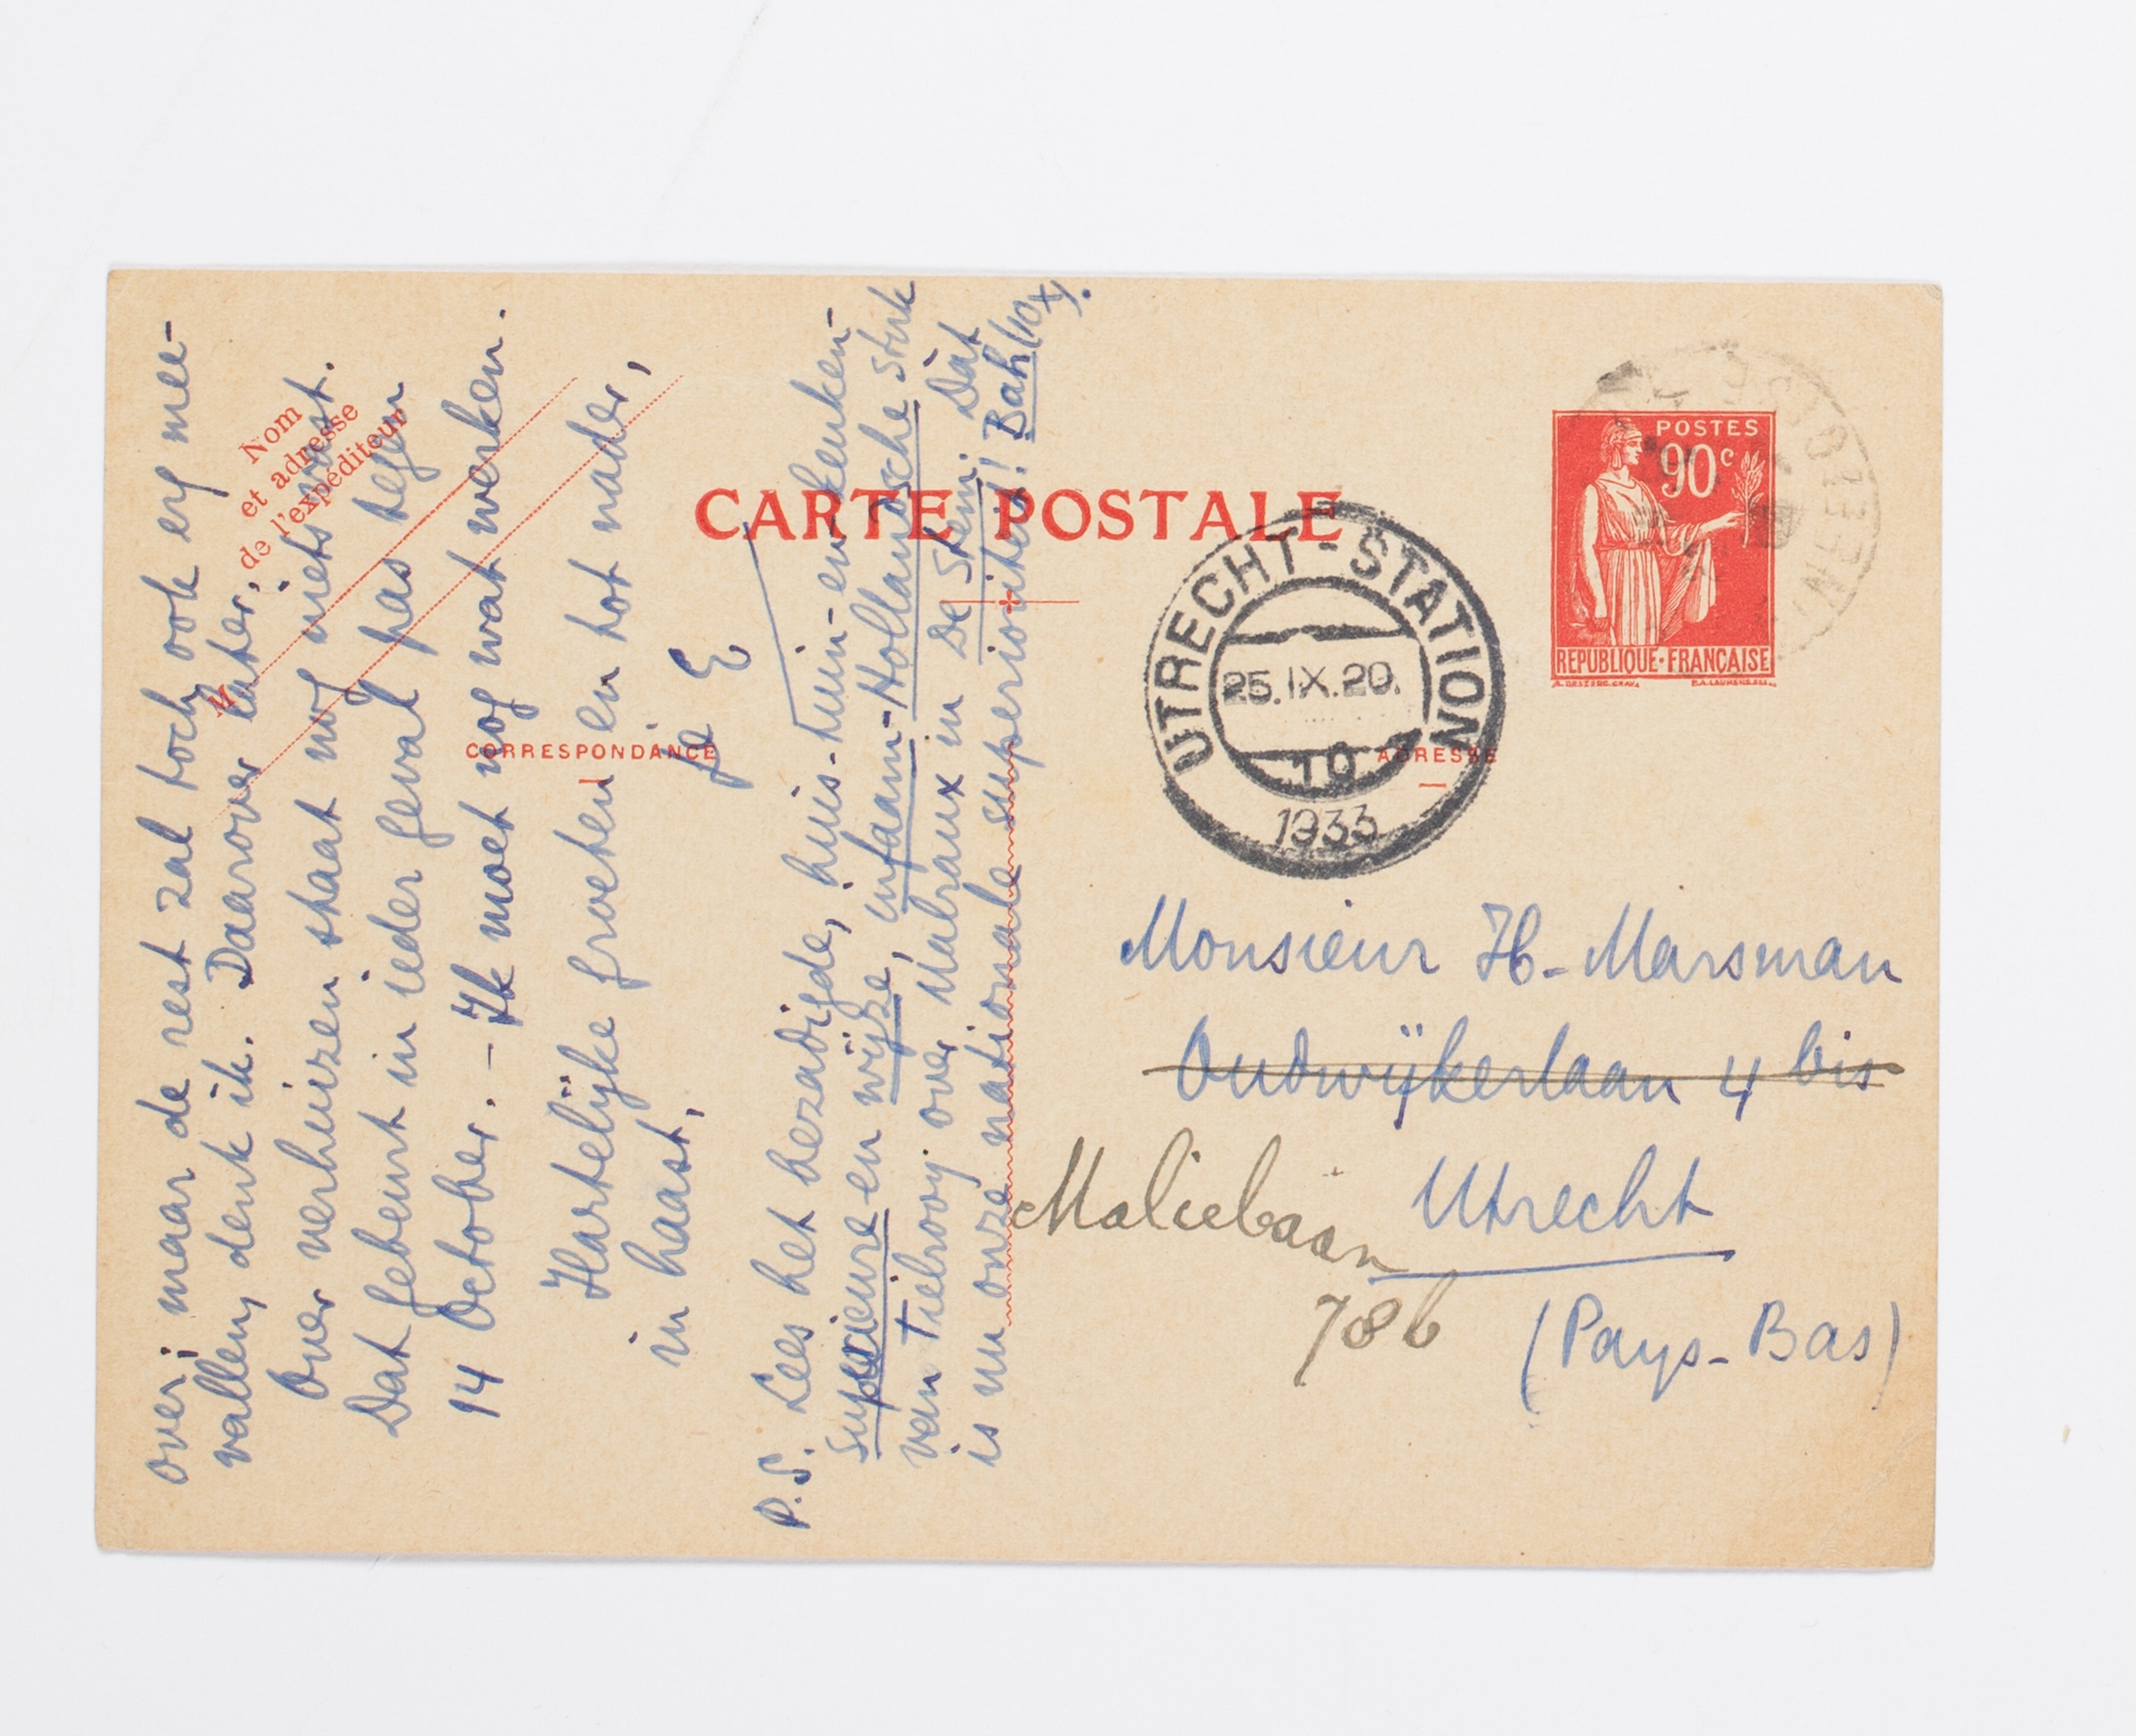 over; maar de rest zal toch ook erg mee-
vallen, denk ik. Daarover later.
Over verhuizen staat nog niets vast.
Dat gebeurt in ieder geval pas tegen
14 October. – Ik moet nog wat werken.
Hartelijke groeten en tot nader,
in haast,
je E
P.S. Lees het bezadigde, huis-tuin-en-keuken-
superieure en wijze, infaam-Hollandsche stuk
van Tielrooy over Malraux in De Stem. Dàt
is nu onze nationale superioriteit! Bah! (10 x).
Nom
et adresse
de l'expéditeur
M
CARTE POSTALE
CORRESPONDANCE
ADRESSE
POSTES
90c
REPUBLIQUE·FRANÇAISE
UTRECHT-STATION
25.IX.20.
10
1933
Monsieur H. Marsman
Oudwijkerlaan 4 bis
Maliebaan
78b
Utrecht
(Pays-Bas)